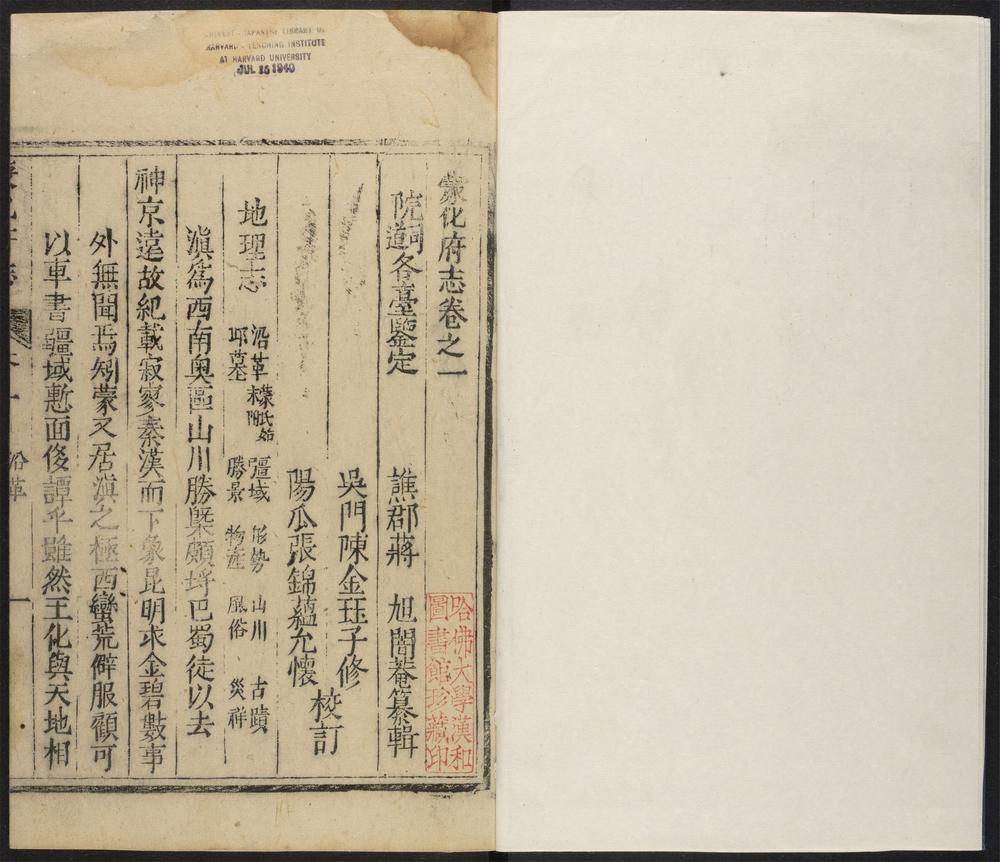 CHINESE - JAPANESE LIBRARY OF
HARVARD - YENCHING INSTITUTE
AT HARVARD UNIVERSITY
JUL 15 1940
蒙化府志卷之一
院司道各臺鑒定
譙郡蔣 旭闇菴纂輯
吳門陳金珏子修
陽瓜張錦蘊允懷
校訂
地理志
沿革蒙氏始末附
疆域 形勢 山川 古蹟
邱墓 勝景 物產 風俗 災祥
滇爲西南奧區山川勝槩頗埒巴蜀徒以去
神京遠故紀載寂寥秦漢而下象昆明求金碧數事
外無聞焉矧蒙又居滇之極西蠻荒僻服顧可
以車書疆域慙面後譚乎雖然王化與天地相
沿革
一
哈佛大學漢和
圖書館珍藏印